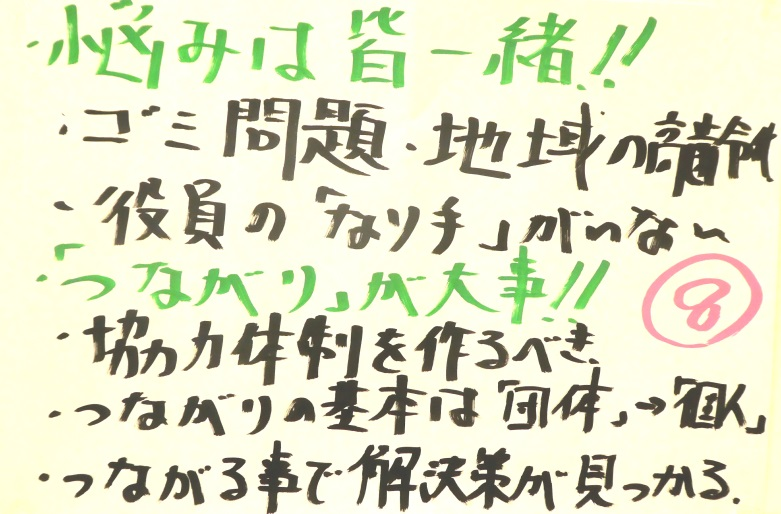 ・悩みは皆一緒!!
・ゴミ問題・地域の高齢化
・役員の「なり手」がいない
「つながり」が大事!!
⑧
・協力体制を作るべき
・つながりの基本は「団体」→「個人」
・つながる事で解決策が見つかる.